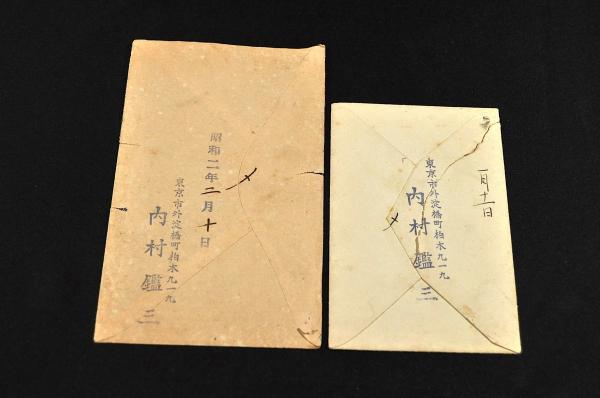 昭和二年二月十日
東京市外淀橋町柏木九一九
内村鑑三
一月十二日
東京市外淀橋町柏木九一九
内村鑑三